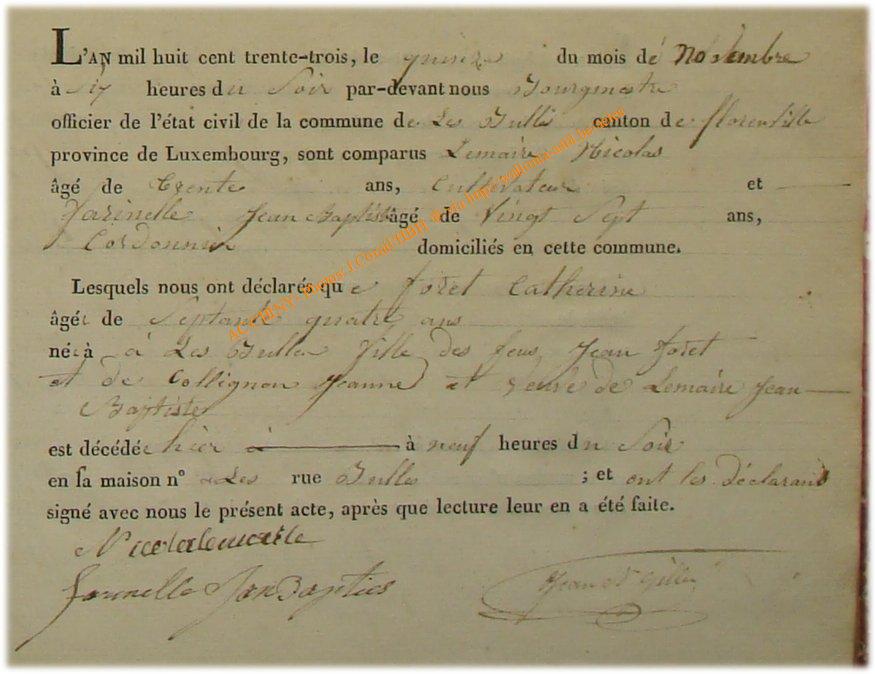 L'AN mil huit cent trente-trois, le quinze du mois de Novembre
à six heures du Soir par-devant nous Bourgmestre
officier de l'état civil de la commune de Les Bulles canton de florenville
province de Luxembourg, sont comparus Lemaire Nicolas
âgé de trente ans, Cultivateur et
Jean Baptiste âgé de Vingt Sept ans,
Cordonnier domiciliés en cette commune.
Lesquels nous ont déclarés que foret Catherine
âgée de Septante quatre ans
née à à Les Bulles fille des feus Jean foret
et de Collignon Jeanne et veuve de Lemaire Jean
Baptiste
est décédée hier à à neuf heures du Soir
en sa maison n° a Les rue Bulles ; et ont les déclarans
signé avec nous le présent acte, après que lecture leur en a été faite.